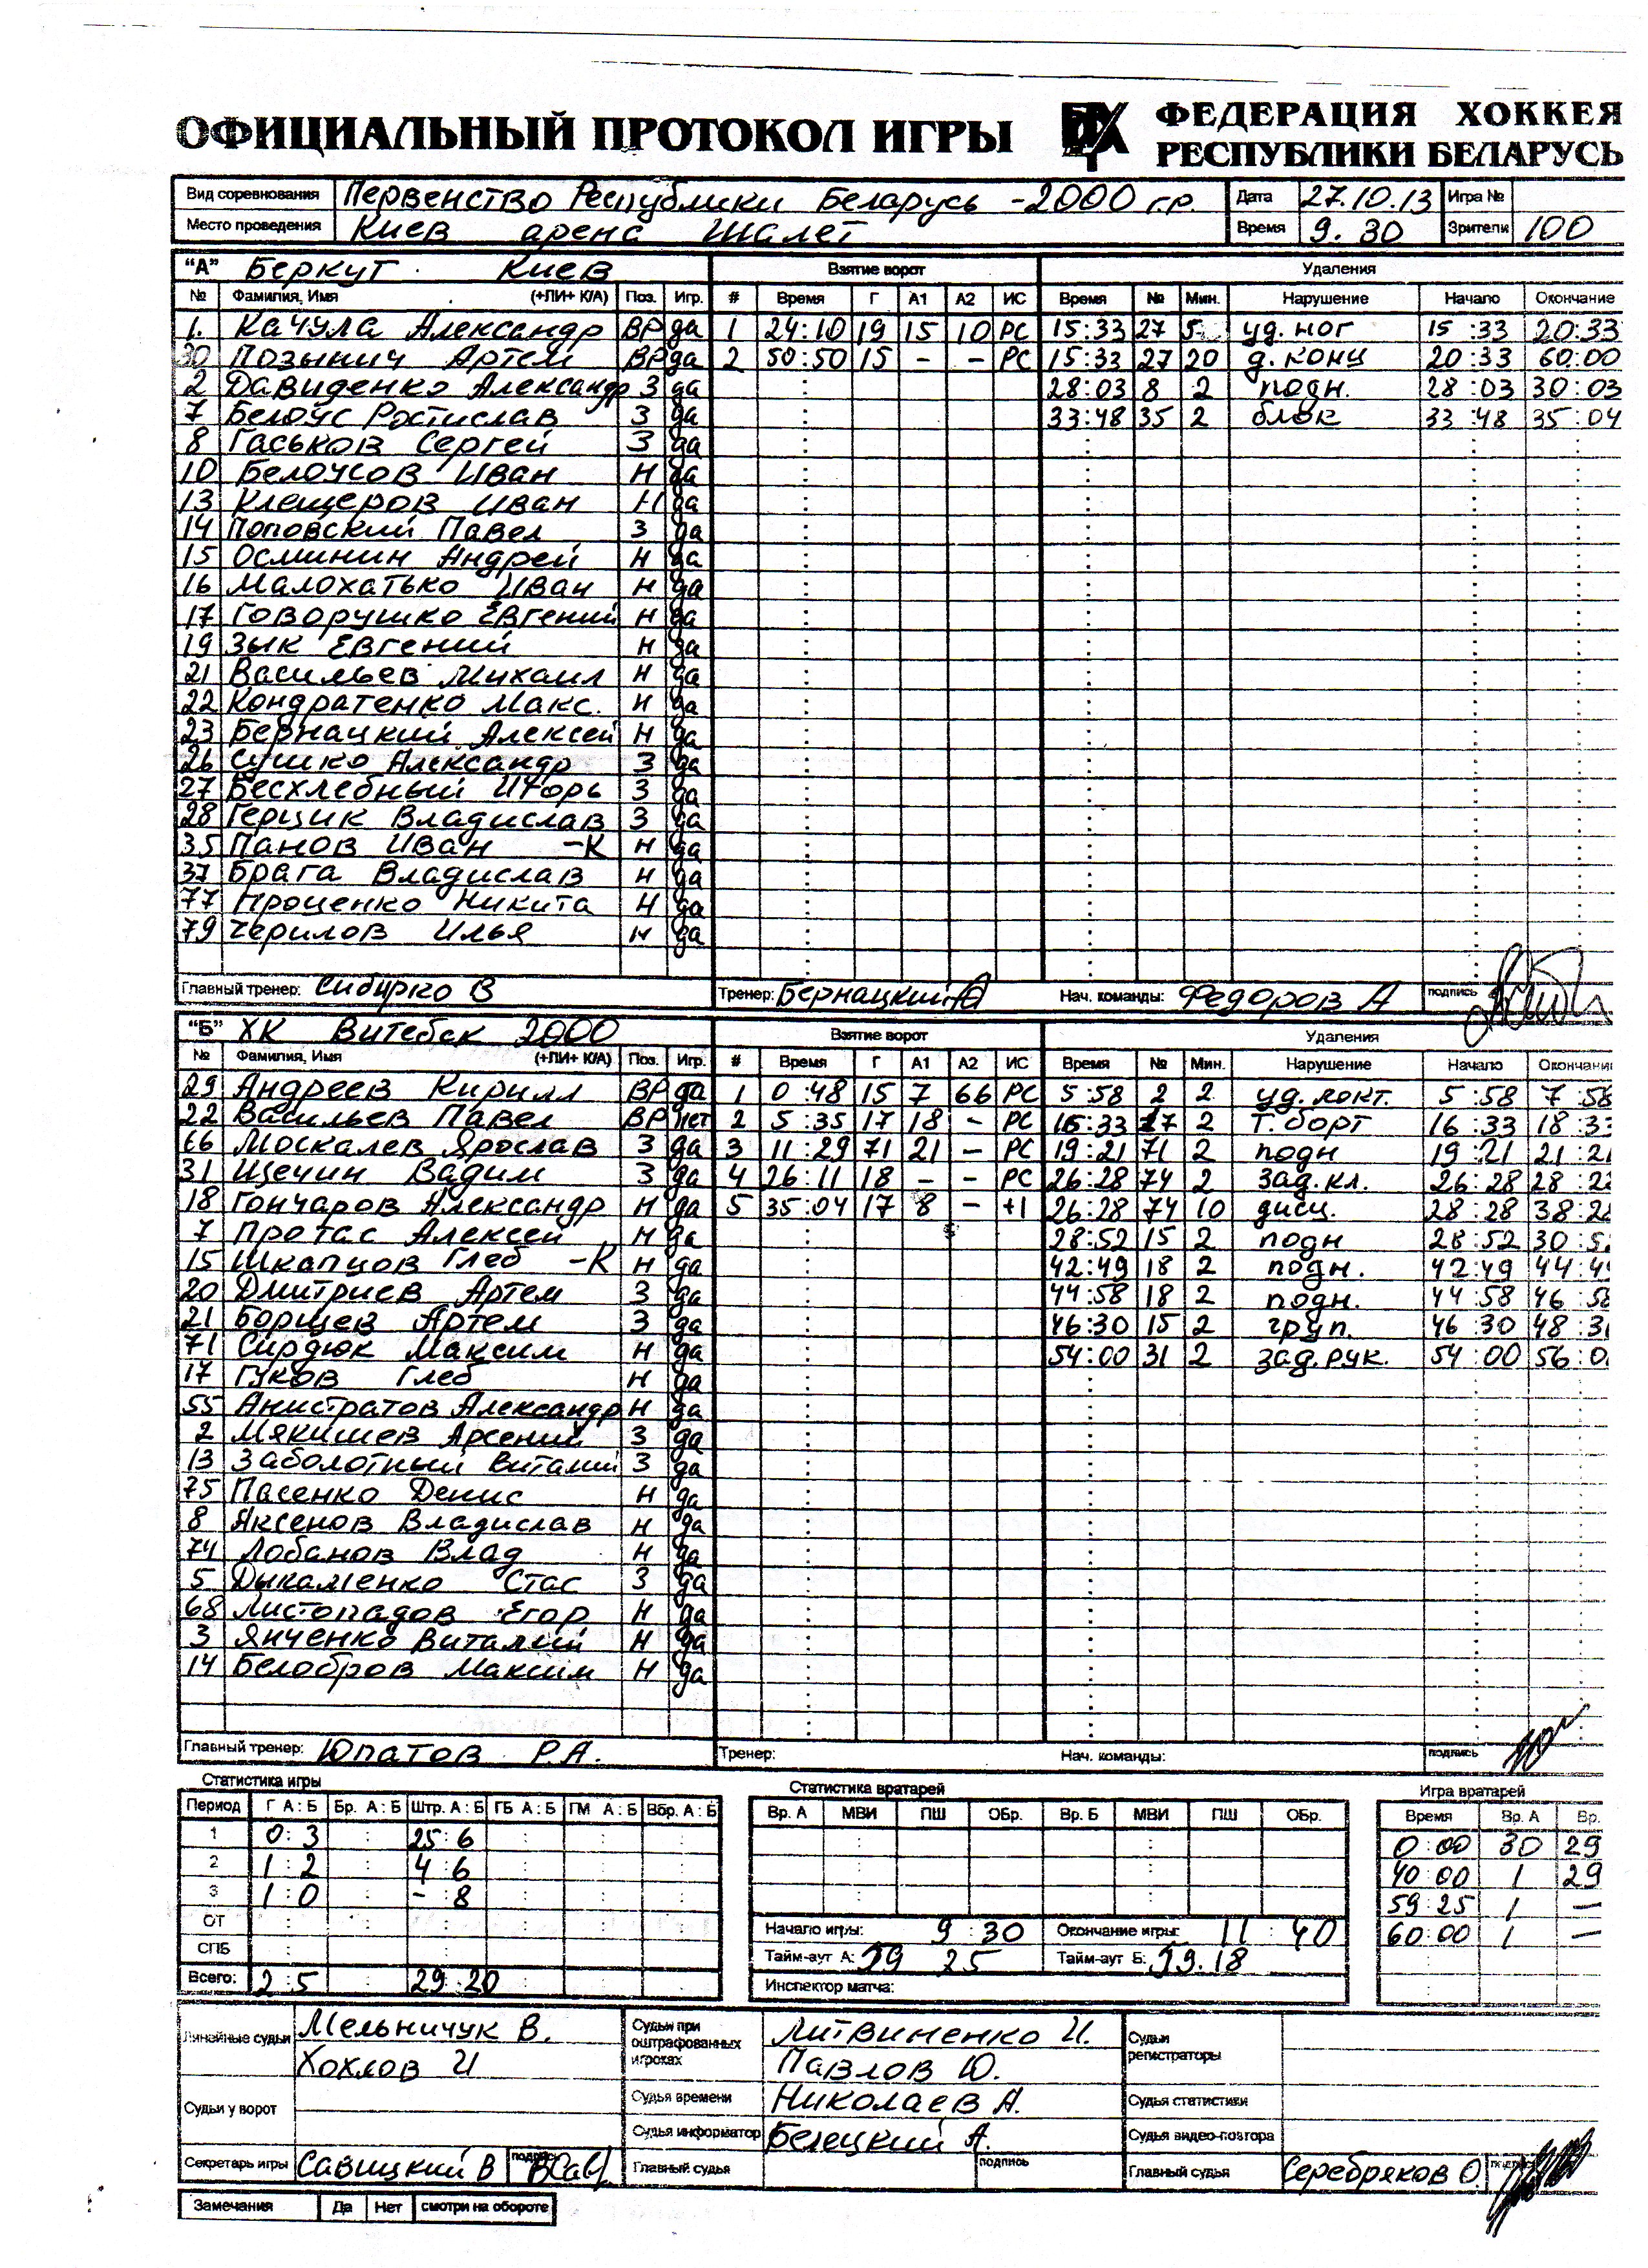 ОФИЦИАЛЬНЫЙ ПРОТОКОЛ ИГРЫ ФЕДЕРАЦИЯ ХОККЕЯ
РЕСПУБЛИКИ БЕЛАРУСЬ
Вид соревнования Первенство Республики Беларусь -2000 г.р. Дата 27.10.13 Игра №
Место проведения Киев арена Шалет Время 9.30 Зрители 100
"А" Беркут Киев Взятие ворот Удаления
№ Фамилия, Имя (+ЛИ+ К/А) Поз. Игр. # Время Г А1 А2 ИС Время № Мин. Нарушение Начало Окончание
1. Качула Александр ВР да 1 24:10 19 15 10 РС 15:33 27 5 уд. ног 15:33 20:33
30 Позынич Артем ВР да 2 50:50 15 - - РС 15:33 27 20 д. конц 20:33 60:00
2 Давиденко Александр З да 28:03 8 2 подн. 28:03 30:03
7 Белоус Ростислав З да 33:48 35 2 блок 33:48 35:04
8 Гаськов Сергей З да
10 Белоусов Иван Н да
13 Клещеров Иван Н да
14 Поповский Павел З да
15 Осминин Андрей Н да
16 Малохатько Иван Н да
17 Говорушко Евгений Н да
19 Зык Евгений Н да
21 Васильев Михаил Н да
22 Кондратенко Макс. Н да
23 Бернацкий Алексей Н да
26 Сушко Александр З да
27 Бесхлебный Игорь З да
28 Герцик Владислав З да
35 Панов Иван -К Н да
37 Брага Владислав Н да
77 Проценко Никита Н да
79 Черилов Илья Н да
Главный тренер: Сибирко В Тренер: Бернацкий А Нач. команды: Федоров А подпись
"Б" ХК Витебск 2000 Взятие ворот Удаления
№ Фамилия, Имя (+ЛИ+ К/А) Поз. Игр. # Время Г А1 А2 ИС Время № Мин. Нарушение Начало Окончани
29 Андреев Кирилл ВР да 1 0:48 15 7 66 РС 5:58 2 2 уд. локт. 5:58 7:58
22 Васильев Павел ВР нет 2 5:35 17 18 - РС 16:33 17 2 т. борт 16:33 18:33
66 Москалев Ярослав З да 3 11:29 71 21 - РС 19:21 71 2 подн 19:21 21:21
31 Щечин Вадим З да 4 26:11 18 - - РС 26:28 74 2 зад. кл. 26:28 28:2
18 Гончаров Александр Н да 5 35:04 17 8 - +1 26:28 74 10 дисц. 28:28 38:2
7 Протас Алексей Н да 28:52 15 2 подн 28:52 30:5
15 Шкапцов Глеб -К Н да 42:49 18 2 подн. 42:49 44:4
20 Дмитриев Артем З да 44:58 18 2 подн. 44:58 46:58
21 Борщев Артем З да 46:30 15 2 груп. 46:30 48:3
71 Сирдюк Максим Н да 54:00 31 2 зад. рук. 54:00 56:0
17 Гуков Глеб Н да
55 Анистратов Александр Н да
2 Мякишев Арсений З да
13 Заболотный Виталий З да
75 Пасенко Денис Н да
8 Аксенов Владислав Н да
74 Лобанов Влад Н да
5 Дыкаленко Стас З да
68 Листопадов Егор Н да
3 Янченко Виталий Н да
14 Белобров Максим Н да
Главный тренер: Юпатов Р.А. Тренер: Нач. команды: подпись
Статистика игры Статистика вратарей Игра вратарей
Период Г А:Б Бр. А:Б Штр. А:Б ГБ А:Б ГМ А:Б Вбр. А:Б Вр. А МВИ ПШ ОБр. Вр. Б МВИ ПШ ОБр. Время Вр. А Вр.
1 0:3 25:6 0:00 30 29
2 1:2 4:6 40:00 1 29
3 1:0 -:8 59:25 1 -
ОТ Начало игры: 9:30 Окончание игры: 11:40 60:00 1 -
СПБ Тайм-аут А: 59 25 Тайм-аут Б: 59.18
Всего: 2:5 29:20 Инспектор матча:
Линейные судьи Мельничук В. Судьи при оштрафованных игроках Литвиненко И. Судьи регистраторы
Хохлов И Павлов Ю.
Судьи у ворот Судья времени Николаев А. Судья статистики
Судья информатор Белецкий А. Судья видео-повтора
Секретарь игры Савицкий В подпись ВСав Главный судья подпись Главный судья Серебряков О. подпись
Замечания Да Нет смотри на обороте